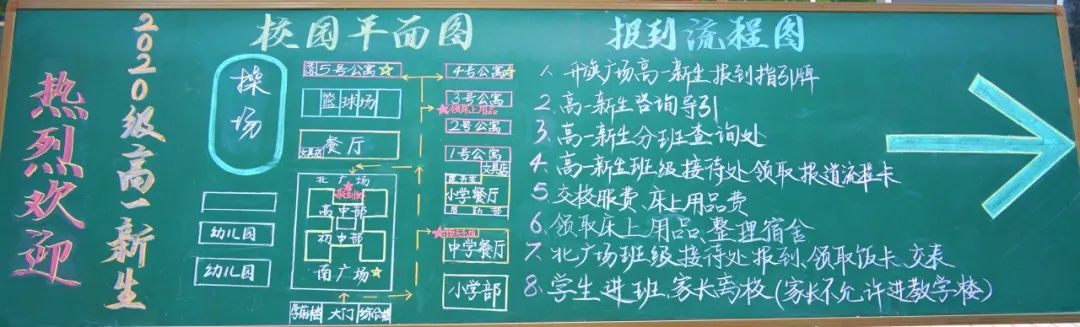 热烈欢迎
2020级高一新生
校园平面图
操场
5号公寓
篮球场
餐厅
文具店
北广场
报到处
高中部
初中部
南广场
幼儿园
幼儿园
学前楼
大门
综合楼
4号公寓
3号公寓
领床上用品
2号公寓
1号公寓
文具店
小学餐厅
后勤部
中学餐厅
小学部
报到流程图
1. 升旗广场高一新生报到指引牌
2. 高一新生咨询导引
3. 高一新生分班查询处
4. 高一新生班级接待处领取报道流程卡
5. 交校服费、床上用品费
6. 领取床上用品、整理宿舍
7. 北广场班级接待处报到、领取饭卡、交表
8. 学生进班,家长离校(家长不允许进教学楼)